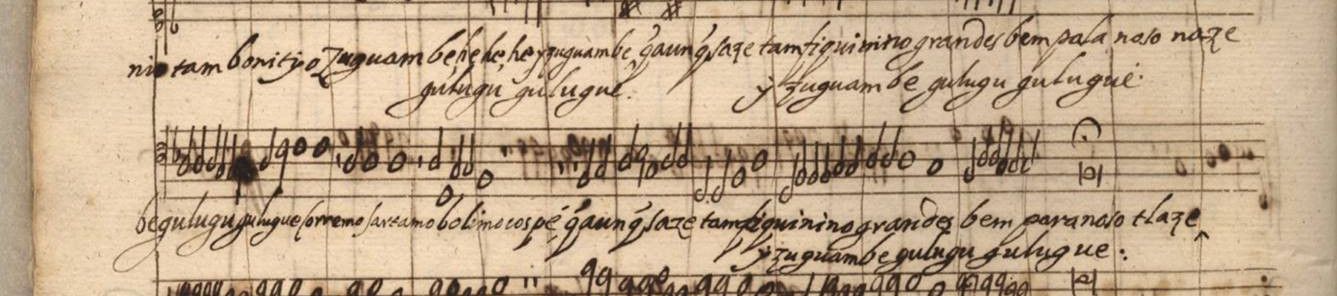 nio tam bonityo zuguambe he he he y zuguambe, q̃ aunq̃ saze tam fiquinino grandes bem pala noso naze
gulugu gulugue. y zuguambe gulugu gulugue.
be gulugu gulugue corremo sartamo bolimo cos pe q̃ aunq̃ saze tam fiquinino grandes bem para noso tlaze
y zuguambe gulugu gulugue: